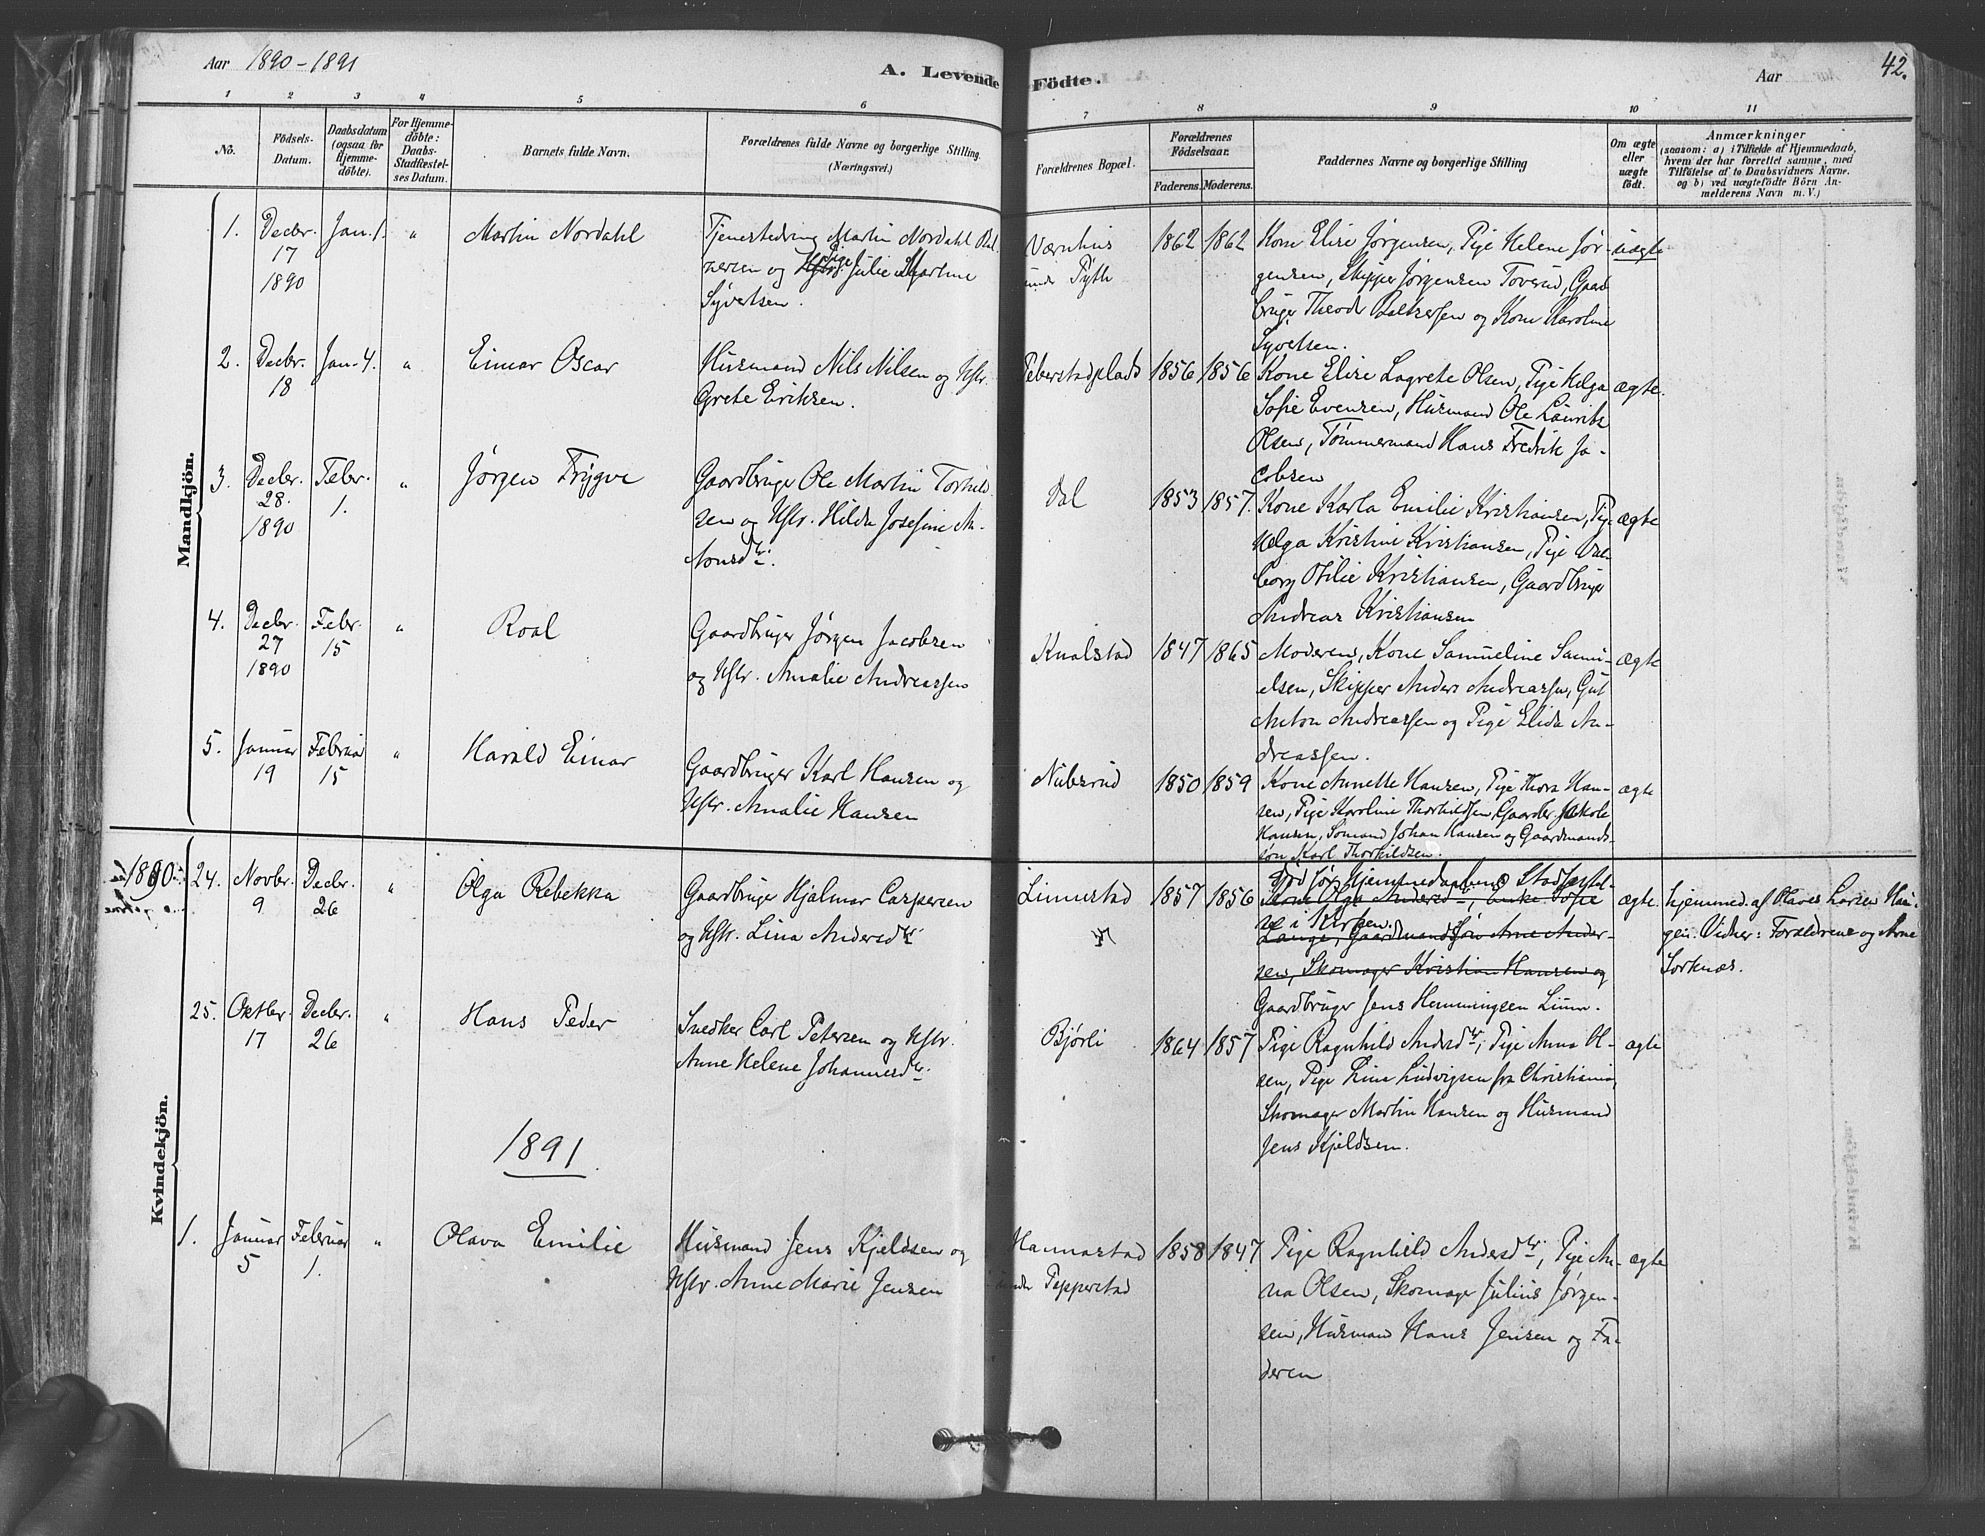 Aar 1890-1891
A. Levende Födte.
Aar
42.
1 2 3 4 5 6 7 8 9 10 11
No.
Födsels-Datum.
Daabsdatum (ogsaa for Hjemme-döbte).
For Hjemme-döbte: Daabs-Stadfæstel-ses Datum.
Barnets fulde Navn.
Forældrenes fulde Navne og borgerlige Stilling (Næringsvei.)
Forældrenes Bopæl.
Forældrenes Födselsaar.
Faderens. Moderens.
Faddernes Navne og borgerlige Stilling
Om ægte eller uægte födt.
Anmærkninger
(saasom: a) i Tilfælde af Hjemmedaab,
hvem der har forrettet samme, med
Tilföielse af to Daabsvidners Navne.
og b) ved uægtefödte Börn An-
melderens Navn m. V.)
Mandkjön.
1. Decbr. 17 1890
Jan. 1.
"
Martin Nordahl
Tjenestedreng Martin Nordahl Bal-
zersen og Pige Julie Martine
Syvertsen.
Værnhus
under Pyth
1862 1862
Kone Elise Jørgensen, Pige Helene Jør-
gensen, Skipper Jørgensen Toverud, Gaard
bruger Theodor Baltzersen og Kone Karoline
Syvetsen.
uægte
2. Decbr. 18
Jan. 4.
"
Einar Oscar
Husmand Nils Nilsen og Hstr.
Grete Eriksen.
Peberstadplads
1856 1856
Kone Elise Lagrete Olsen, Pige Helga
Sofie Evensen, Husmand Ole Lauritz
Olsen, Tømmermand Hans Fredrik Ja-
cobsen
ægte.
3. Decbr. 28. 1890
Febr. 1.
"
Jørgen Trygve
Gaardbruger Ole Martin Torkild-
sen og Hstr. Hilda Josefine An-
tonsdtr.
Dal
1853 1857.
Kone Karla Emilie Kristiansen, Pige
Helga Kristine Kristiansen, Pige Val-
borg Otilie Kristiansen, Gaardbruger
Andreas Kristiansen
ægte
4. Decbr. 27 1890
Febr. 15
"
Roal
Gaardbruger Jørgen Jacobsen
og Hstr. Amalie Andreassen
Knalstad
1847 1865
Moderen, Kone Samueline Samu-
elsen, Skipper Anders Andreassen, Gut
Anton Andreassen og Pige Elida An-
dreassen.
ægte
5. Januar 19
Februar 15
"
Harald Einar
Gaardbruger Karl Hansen og
Hstr. Amalie Hansen
Nubsrud
1850 1859
Kone Annette Hansen, Pige Thora Han-
sen, Pige Karoline Thorkildsen, Gaardbr. Jakob
Hansen, Sømand Johan Hansen og Gaardmands-
søn Karl Thorkildsen.
ægte
Kvindekjön.
1890
24. Novbr. 9
Decbr. 26
"
Olga Rebekka
Gaardbruger Hjalmar Caspersen
og Hstr. Lina Andersdtr.
Linnestad
1857 1856
Død før Hjemmedaabens Stadfæstel-
se i Kirken.
Kone Olga Andersdtr., Enke Sofie
Lange, Gaardmandssøn Arne Ander-
sen, Skomager Kristian Hansen og
Gaardbruger Jens Hemmingsen Linn.
ægte.
hjemmed. af Olaves Larsen Hau-
gen. Vidner: Forældrene og Arne
Sorknæs.
25. Oktbr. 17
Decbr. 26
"
Hans Peder
Snedker Carl Petersen og Hstr.
Anne Helene Johannesdtr.
Bjørli
1864 1857
Pige Ragnhild Andersdtr., Pige Anna Ol-
sen, Pige Lina Ludvigsen fra Christiania,
Skomager Martin Hansen og Husmand
Jens Kjeldsen.
ægte
1891
1. Januar 5
Februar 1.
"
Olava Emilie
Husmand Jens Kjeldsen og
Hstr. Anne Marie Jensen
Hannastad
under Pepperstad
1858 1847
Pige Ragnhild Andersdtr., Pige An-
na Olsen, Skomager Julius Jørgen-
sen, Husmand Hans Jensen og Fa-
deren
ægte